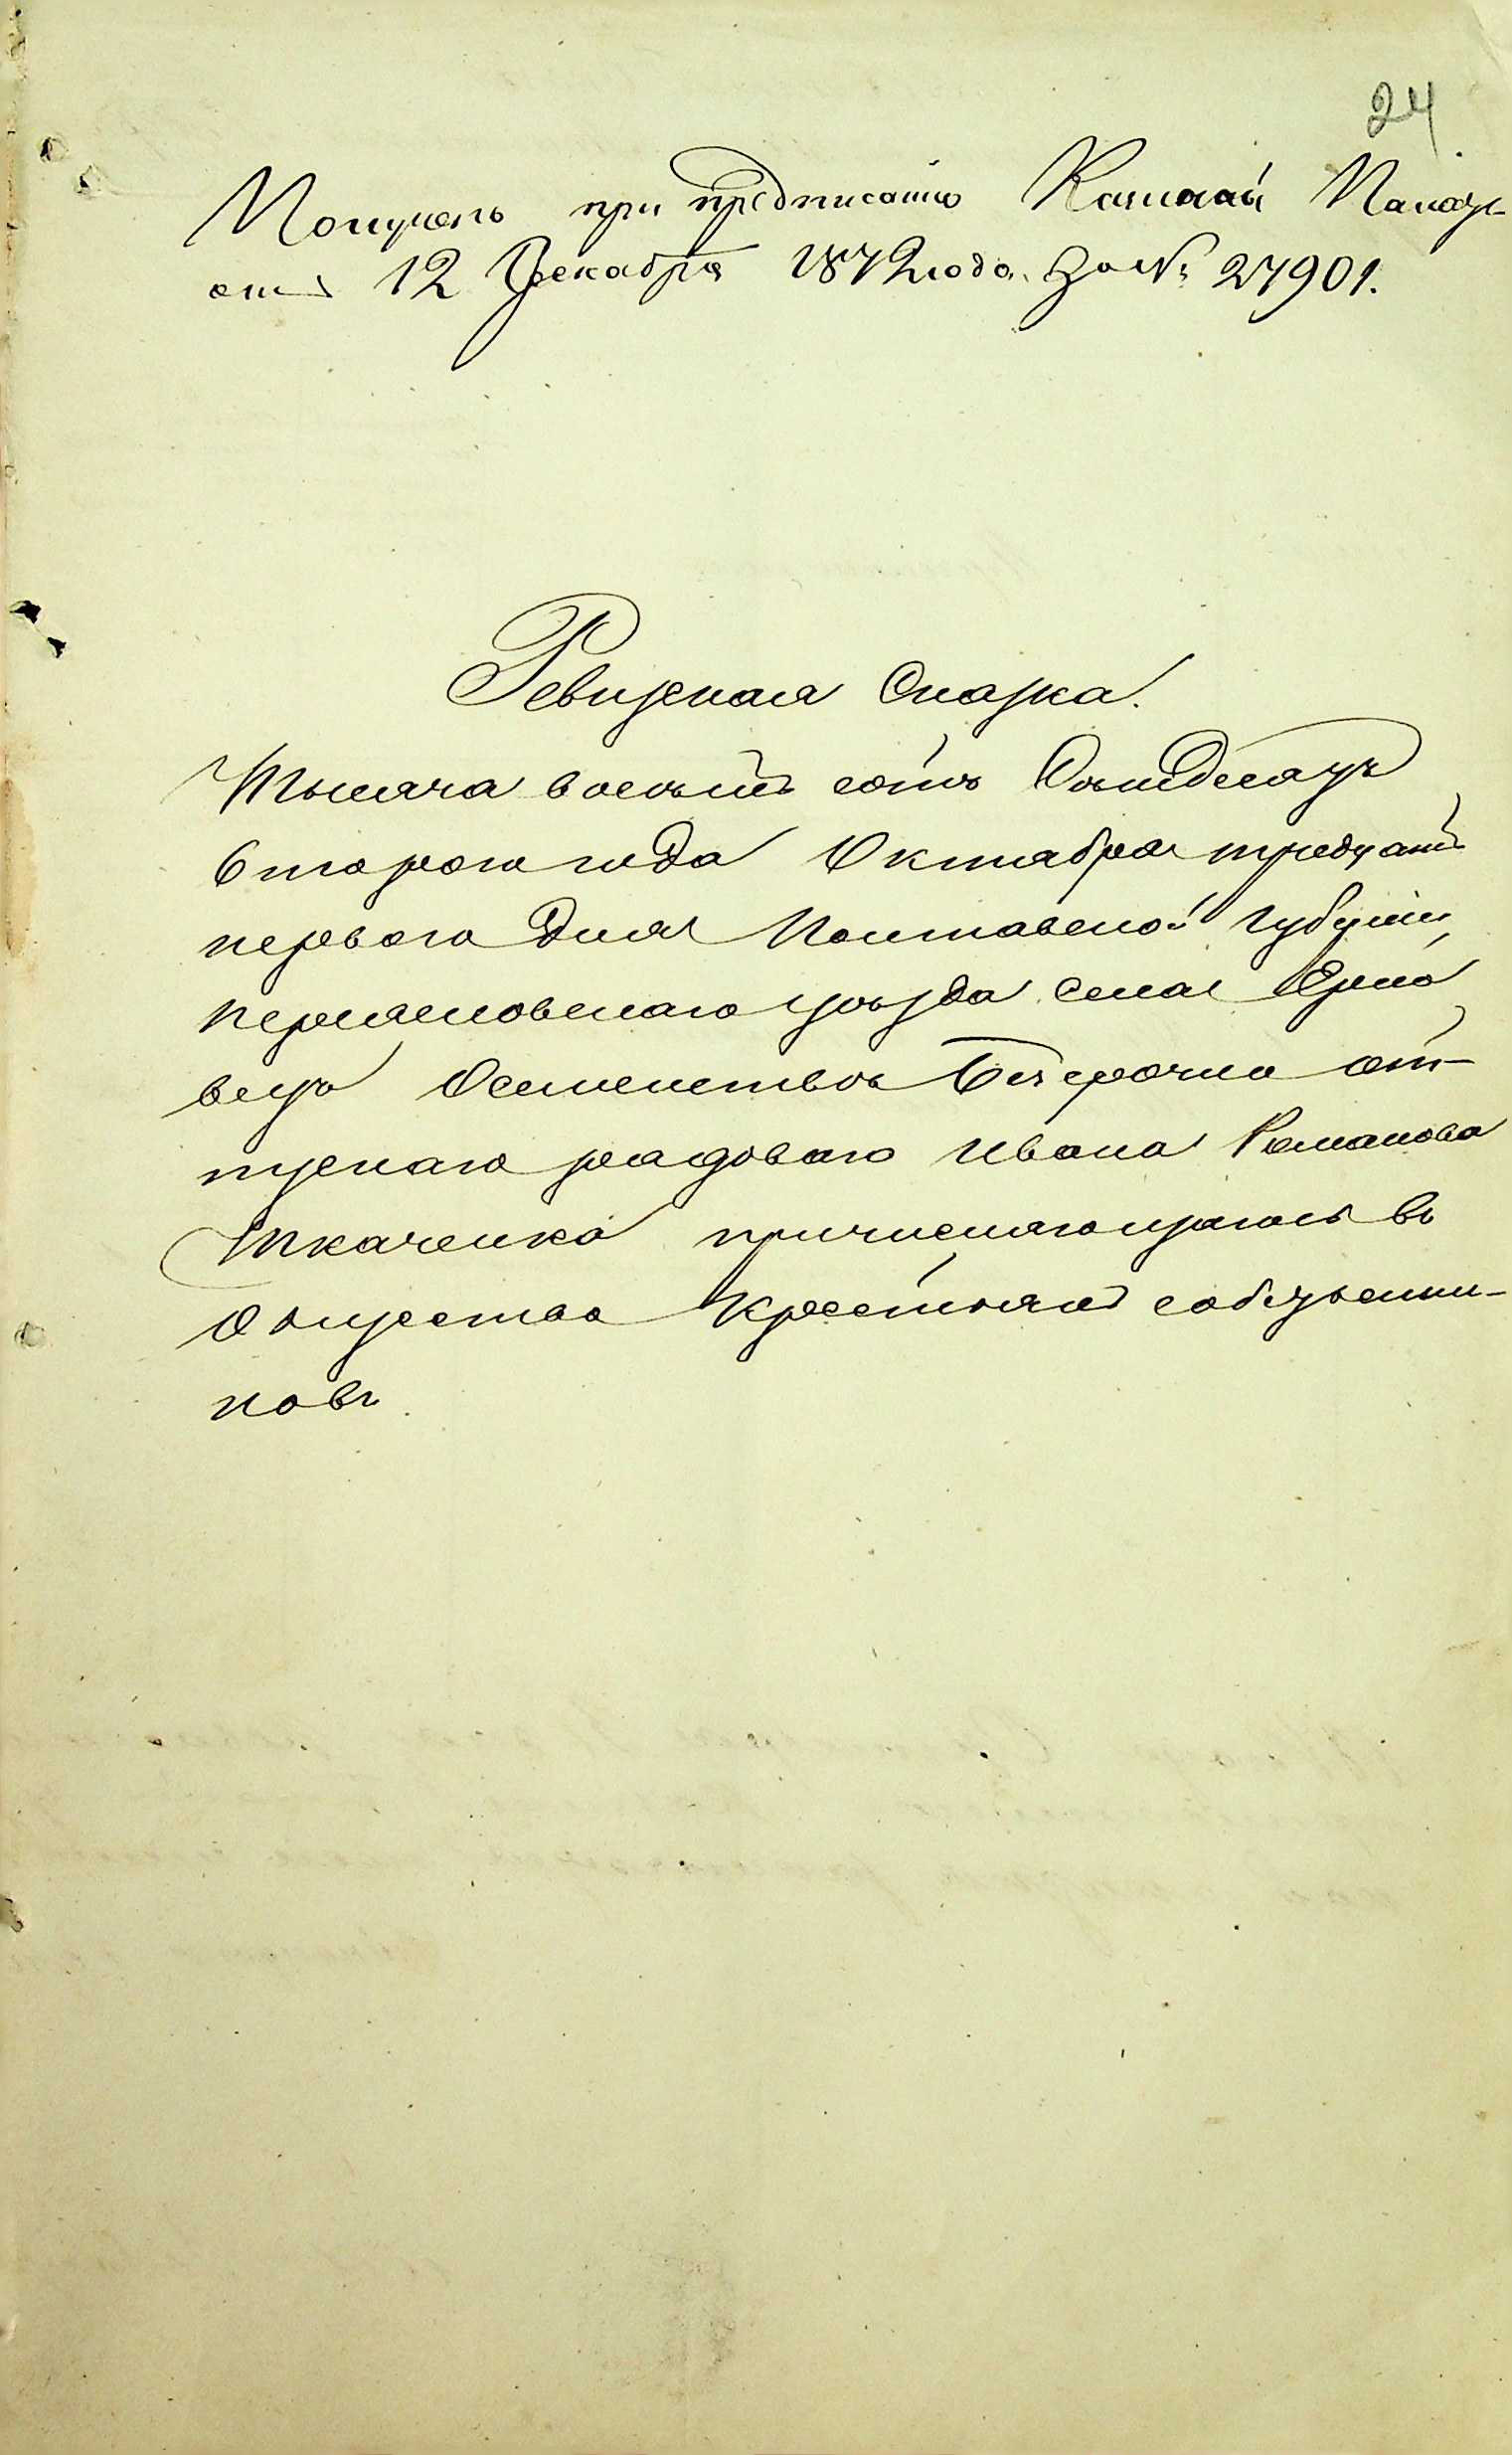 24
Получено при предписаніи Казенной Палаты
отъ 12 Декабря 1872 года за № 27901.
Ревизская Сказка.
Тысяча восемь сотъ Семьдесятъ
второго года Октября тридцать
первого дня Полтавской Губерніи
Переяславского уѣзда села Ерко
вецъ Осемействѣ безсрочно от-
пускнаго рядового Ивана Романова
Ткаченка причисляющагося въ
Общество Крестьянъ собственни-
ковъ